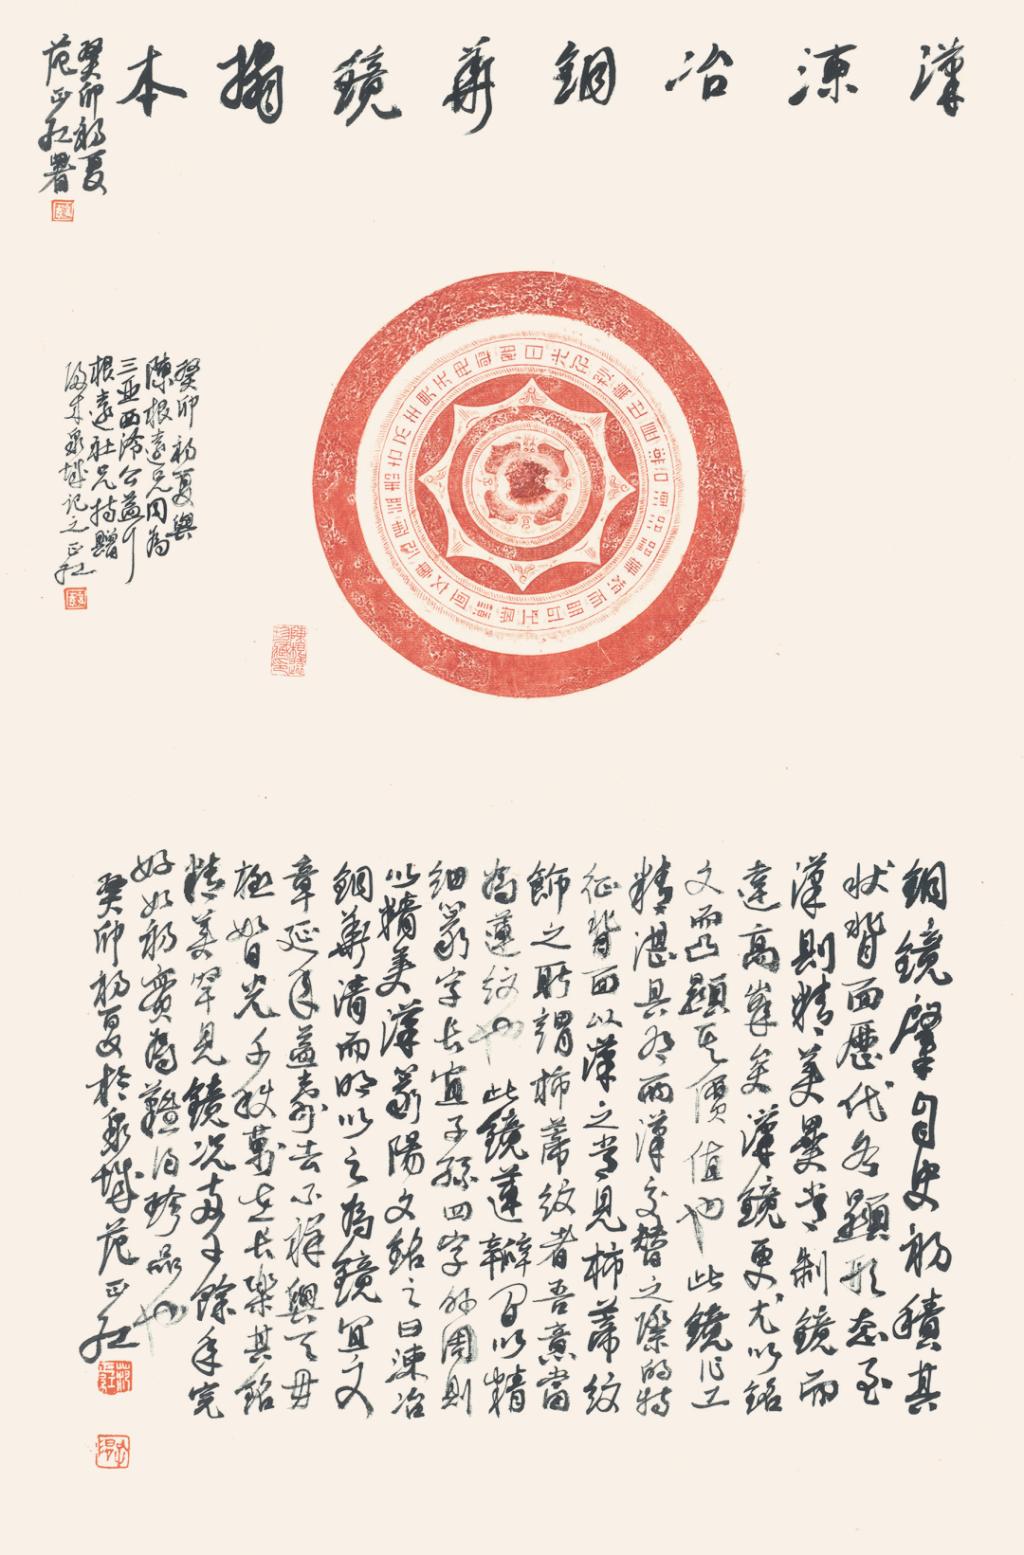 漢涷冶銅華鏡搨本
癸卯初夏
范正紅署
癸卯初夏與
陳根遠兄同為
三亚西泠公益行
根遠社兄持贈
歸来泉城記之正红
銅鏡肇自史初積其
狀背面歷代各顯形态至
漢則精美異常制鏡而
達高峯矣漢鏡更尤以銘
文而凸顯其價值也此鏡作工
精湛具有兩漢交替之際的特
征背面以漢之常見柿蒂紋
飾之所謂柿蒂紋者吾意當
為蓮紋也此鏡蓮瓣間以精
細篆字長宜子孫四字外周則
以精美漢篆陽文銘之曰涷冶
銅華清而明以之為鏡宜文
章延年益壽去不祥與天毋
極如日光千秋萬世長樂其銘
精美罕見鏡况两千餘年完
好如初實為難得珍品也
癸卯初夏於泉城范正红